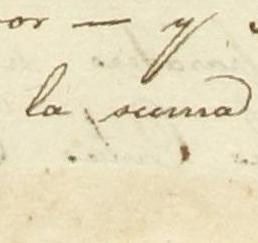 or — y
la suma